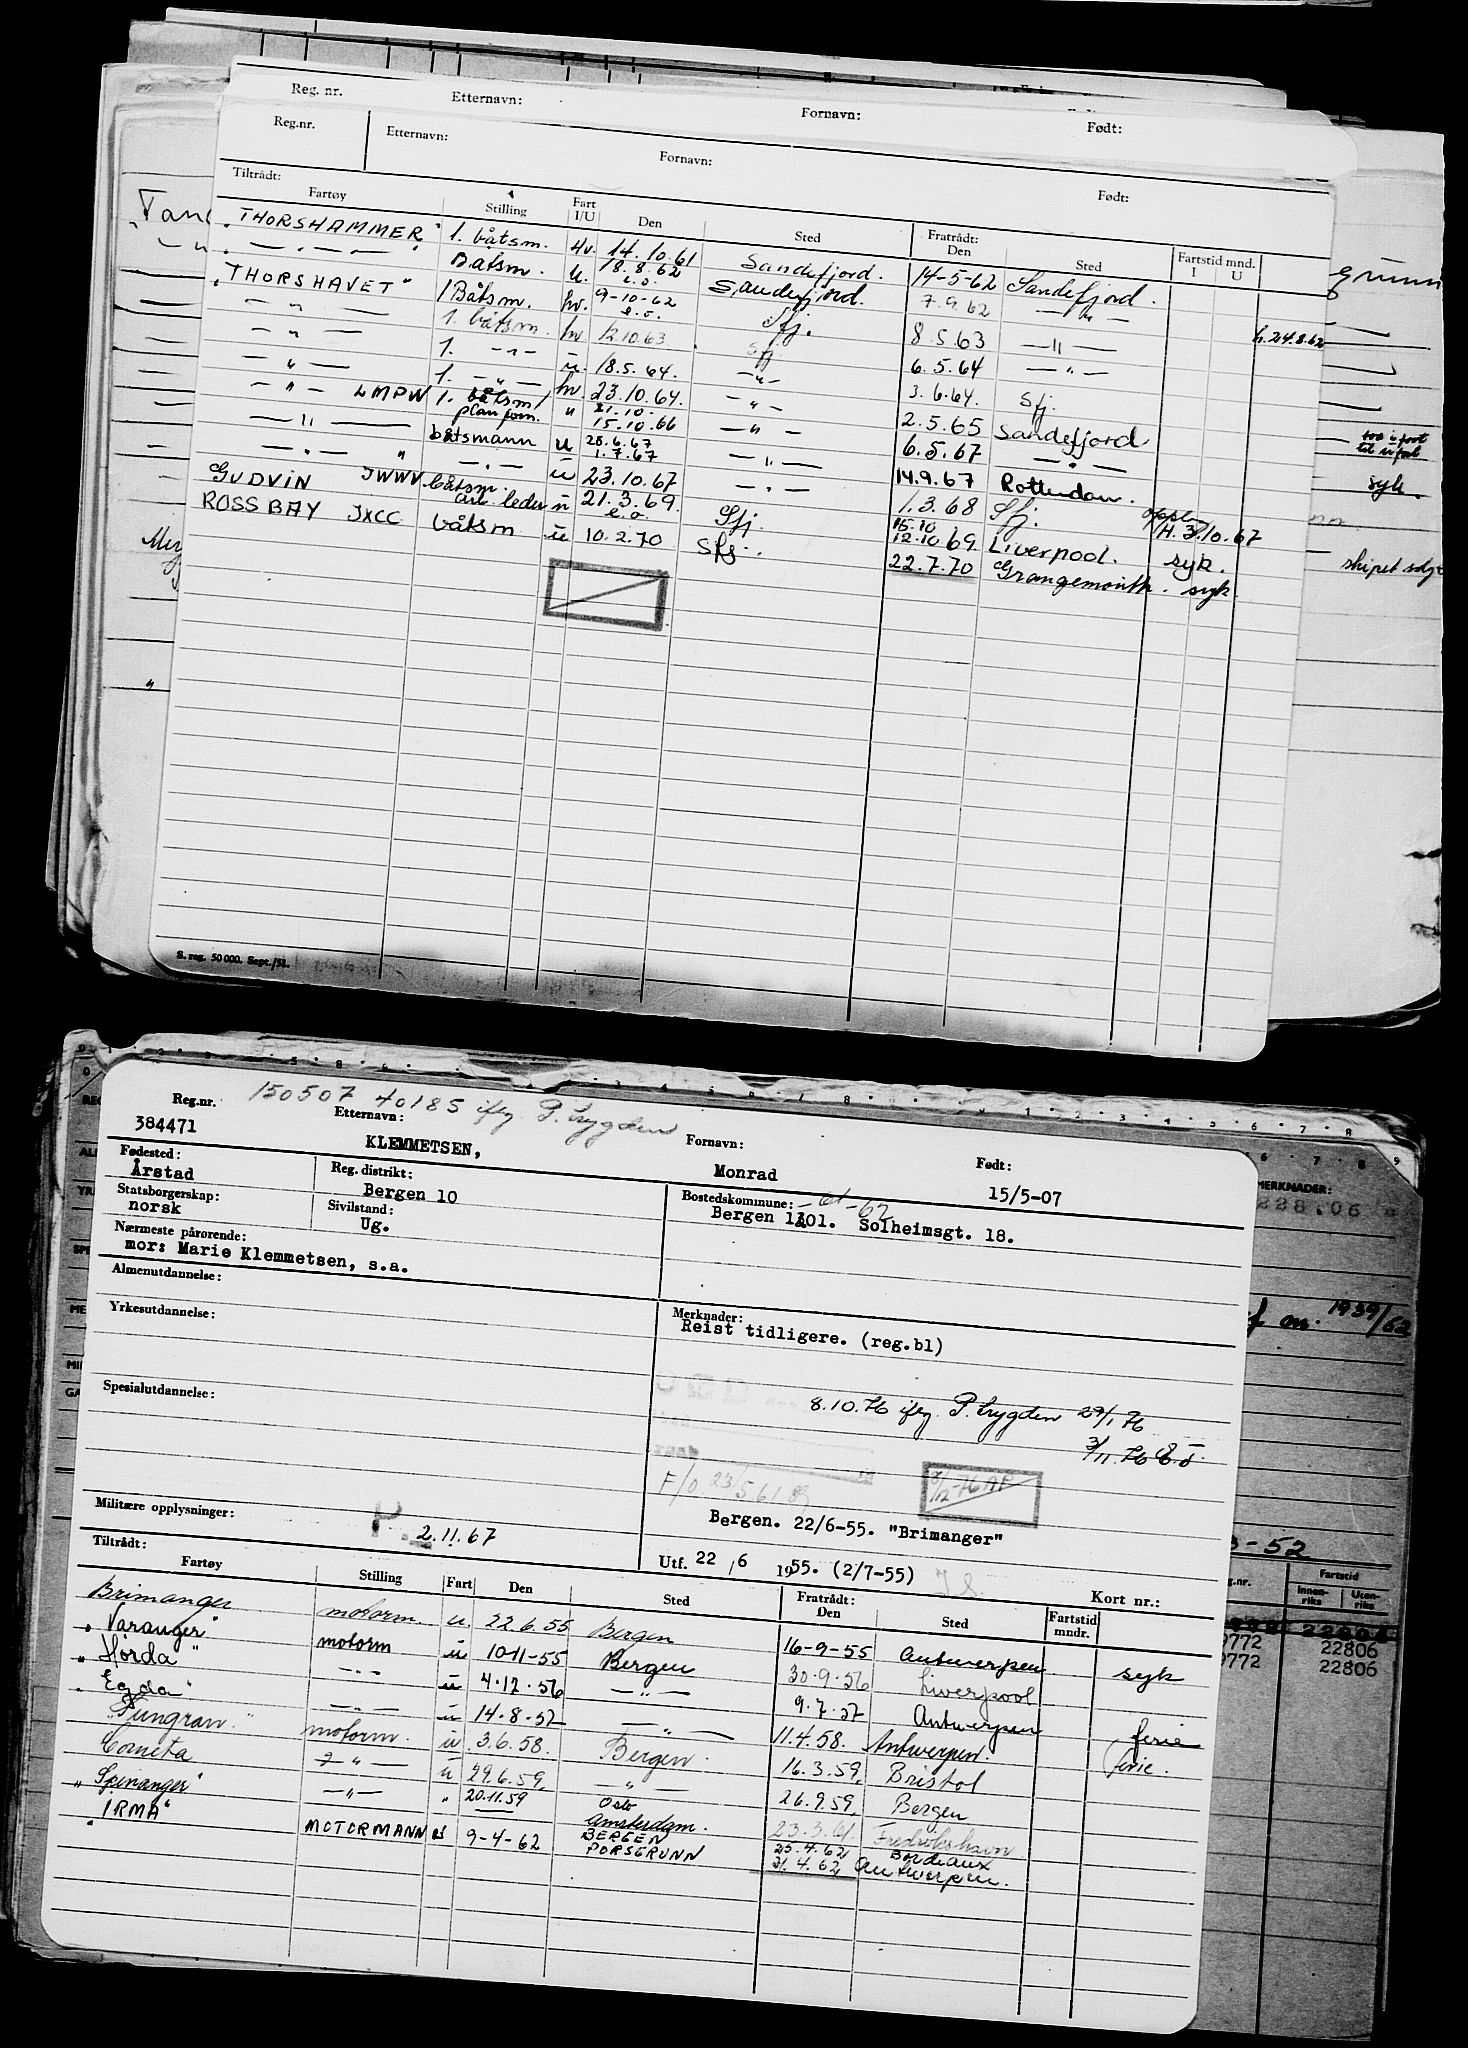 Reg. nr. Etternavn: Fornavn: Født:
Reg.nr. Etternavn: Fornavn: Født:
Tiltrådt: Fratrådt:
Fartøy Stilling Fart I/U Den Sted Den Sted Fartstid mnd. I U
"THORSHAMMER" 1. båtsm. Hv. 14.10.61 Sandefjord. 14-5-62 Sandefjord.
— " — " — Båtsm. U. 18.8.62 Sandefjord. 7.9.62 — " — h. 24.8.62
"THORSHAVET" 1 Båtsm. hv. 9-10-62 Sfj. 8.5.63 — " —
— " — 1. båtsm. hv 12.10.63 Sfj 6.5.64 — " —
— " — 1. — " — u. 18.5.64. — " — 3.6.64. Sfj.
— " — 1. — " — hv. 23.10.64. — " — 2.5.65 Sandefjord.
— " — LMPW 1. båtsm/ plan form. u 21.10. 15.10.66 — " — 6.5.67 — " —
— " — båtsmann u 28.6.67 1.7.67 — " — 14.9.67 Rotterdam.
— " — " — " — u 23.10.67 — " — 1.3.68 Sfj. H. 3.10.67
GUDVIN JWWV båtsm. arb. leder u 21.3.69. Sfj. 15.10 12.10.69. Liverpool. syk.
ROSS BAY JXCC båtsm u 10.2.70 Sfj. 22.7.70 Grangemouth. syk
syk.
skipet solgt
S. reg. 50 000. Sept./51.
150507 40185 iflg. P. trygden
Reg.nr. Etternavn: Fornavn: Født:
384471 KLEMMETSEN, Monrad 15/5-07
Fødested: Reg. distrikt: Bostedskommune: -61-62
Årstad Bergen 10 Bergen 1301. Solheimsgt. 18.
Statsborgerskap: Sivilstand:
norsk Ug.
Nærmeste pårørende:
mor: Marie Klemmetsen, s.a.
Almenutdannelse:
Yrkesutdannelse: Merknader:
Reist tidligere. (reg.bl)
Spesialutdannelse:
8.10.76 iflg. P. trygden 29/1 76
3/11.76
F/O 23/5 61
8/12-76
Militære opplysninger: P. 2.11.67
Bergen. 22/6-55. "Brimanger"
Utf. 22 / 6 1955. (2/7-55)
Kort nr.:
Tiltrådt: Fratrådt:
Fartøy Stilling Fart Den Sted Den Sted Fartstid mndr.
Brimanger motorm. u. 22.6.55 Bergen 16-9-55 Antwerpen syk
"Varanger" motorm u 10-11-55 Bergen 30.9.56 Liverpool
"Hørda" — " — u 4.12.56 — " — 9.7.57 Antwerpen ferie
"Egda" — " — u 14-8-57 — " — 11.4.58. Antwerpen. ferie.
"Pungran." motorm. u 3.6.58. Bergen. 16.3.59. Bristol
Corneta — " — u 29.6.59. — " — 26.9.59. Bergen
"Spinanger" — " — " 20.11.59 Oslo Amsterdam. 23.3.61. Fredrikshavn
"IRMA" MOTORMANN u 9-4-62 BERGEN PORSGRUNN 25.4.62 Bordeaux
31.4.62 Antwerpen.
MERKNADER:
22806
1939/62
-52
Fartstid
Innenriks Utenriks
9772 22806
9772 22806